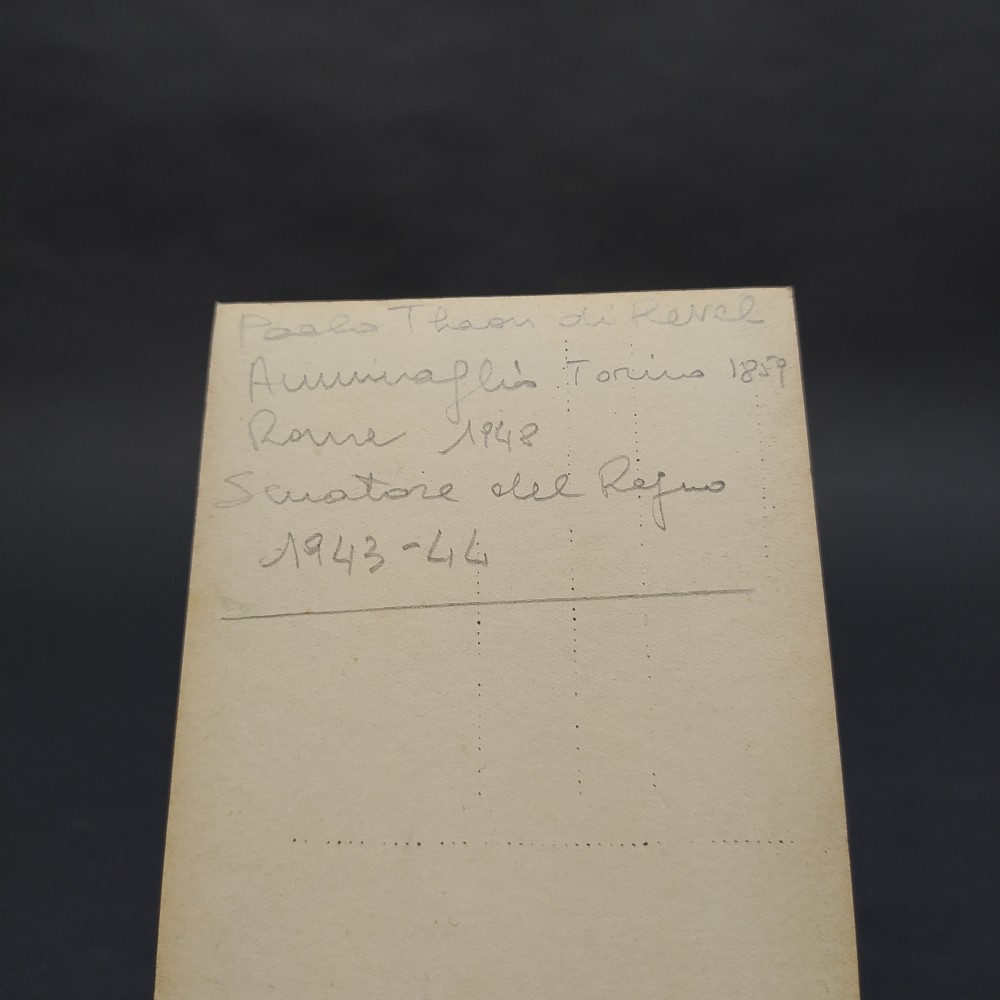 Paolo Thaon di Revel
Ammiraglio Torino 1859
Rome 1948
Senatore del Regno
1943-44